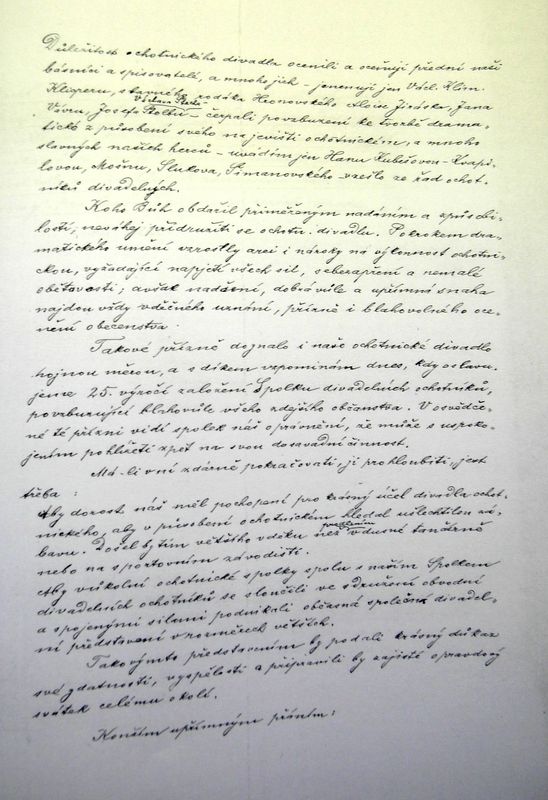 Důležitost ochotnického divadla ocenili a oceňují přední naši
básníci a spisovatelé, a mnoho jich - jmenuji jen Václ. Klim.
Klicperu, slavného rodáka Hronovského Aloise Jiráska, Jana
Vávru, Josefa Štolbu - čerpali povzbuzení ke tvorbě drama-
tické z působení svého na jevišti ochotnickém, a mnoho
slavných našich herců - uvádím jen Hanu Kubešovou-Kvapi-
lovou, Mošnu, Slukova, Šimanovského - vzešlo ze řad ochot-
níků divadelných.
Koho Bůh obdařil přiměřeným nadáním a způsobi-
lostí, neváhej přidružiti se ochotn. divadlu. Pokrokem dra-
matického umění vzrostly arci i nároky na výkonnost ochotni-
ckou, vyžadující napjetí všech sil, sebezapření a nemalé
obětavosti; avšak nadšení, dobrá vůle a upřímná snaha
najdou vždy vděčného uznání, přízně i blahovolného oce-
nění obecenstva.
Takové přízně doznalo i naše ochotnické divadlo
hojnou měrou, a s díkem vzpomínám dnes, kdy oslavu-
jeme 25. výročí založení Spolku divadelních ochotníků,
povzbuzující blahovůle všeho zdejšího občanstva. V osvědče-
né té přízni vidí spolek náš oprávnění, že může s uspoko-
jením pohlížeti zpět na svou dosavadní činnost.
Má-li v ní zdárně pokračovati, ji prohloubiti, jest
třeba:
Aby dorost náš měl pochopení pro krásný účel divadla ochot-
nického, aby v působení ochotnickém hledal ušlechtilou zá-
bavu. Došel by tím většího vděku než v dusné tančírně
nebo na sportovním závodišti.
Aby vůkolní ochotnické spolky spolu s naším Spolkem
divadelních ochotníků se sloučili ve sdružení obvodní
a spojenými silami podnikali občasná společná divadel-
ní představení v rozměrech větších.
Takovýmto představením by podali krásný důkaz
své zdatnosti, vyspělosti a připravili by zajisté opravdový
svátek celému okolí.
Končím upřímným přáním: